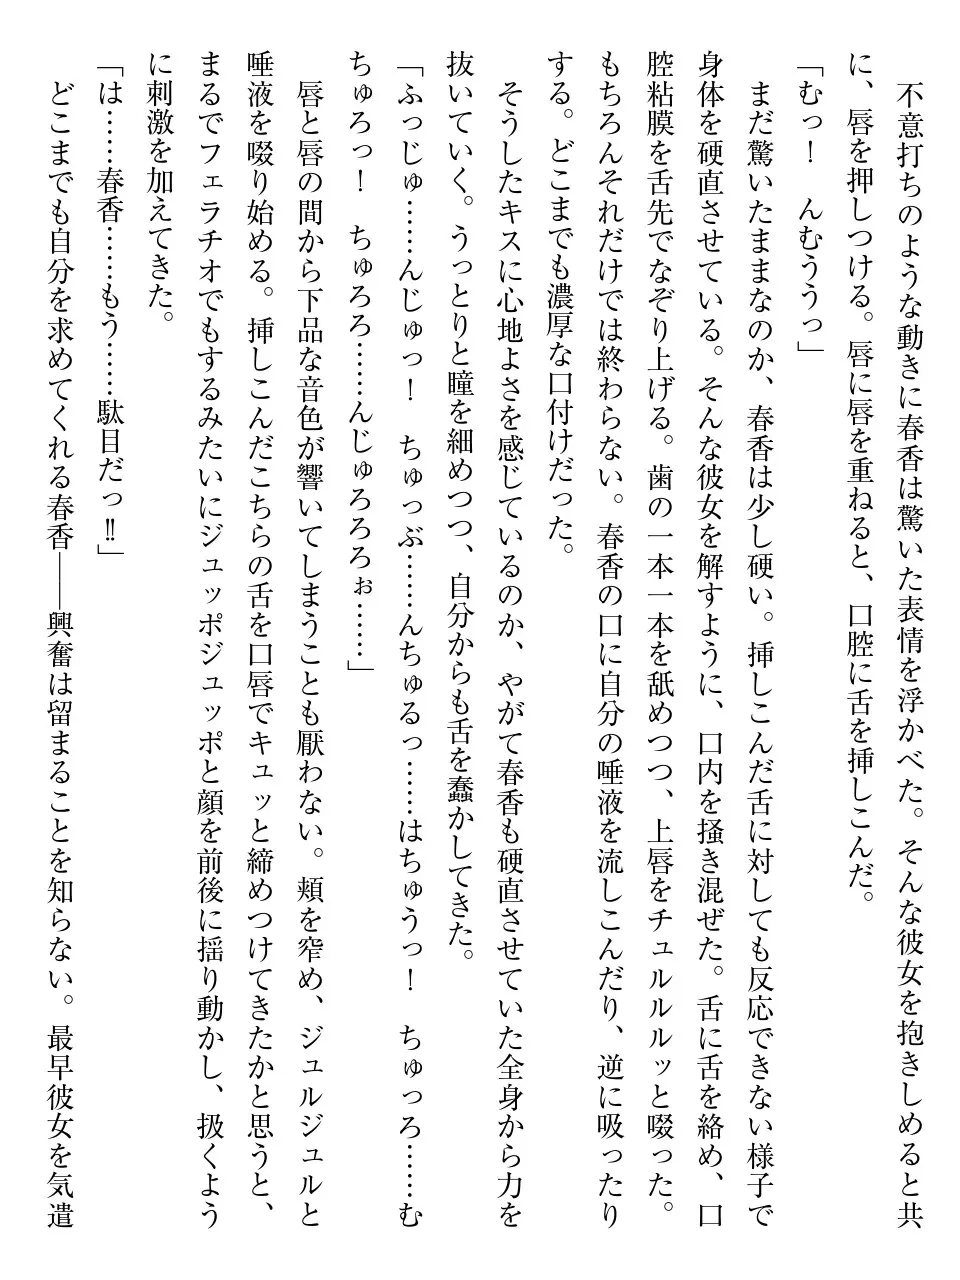 不意打ちのような動きに春香は驚いた表情を浮かべた。そんな彼女を抱きしめると共
に、唇を押しつける。唇に唇を重ねると、口腔に舌を挿しこんだ。
「むっ！　んむううっ」
　まだ驚いたままなのか、春香は少し硬い。挿しこんだ舌に対しても反応できない様子で
身体を硬直させている。そんな彼女を解すように、口内を掻き混ぜた。舌に舌を絡め、口
腔粘膜を舌先でなぞり上げる。歯の一本一本を舐めつつ、上唇をチュルルルッと啜った。
もちろんそれだけでは終わらない。春香の口に自分の唾液を流しこんだり、逆に吸ったり
する。どこまでも濃厚な口付けだった。
　そうしたキスに心地よさを感じているのか、やがて春香も硬直させていた全身から力を
抜いていく。うっとりと瞳を細めつつ、自分からも舌を蠢かしてきた。
「ふっじゅ……んじゅっ！　ちゅっぶ……んちゅるっ……はちゅうっ！　ちゅっろ……む
ちゅろっ！　ちゅろろ……んじゅろろろぉ……」
　唇と唇の間から下品な音色が響いてしまうことも厭わない。頬を窄め、ジュルジュルと
唾液を啜り始める。挿しこんだこちらの舌を口唇でキュッと締めつけてきたかと思うと、
まるでフェラチオでもするみたいにジュッポジュッポと顔を前後に揺り動かし、扱くよう
に刺激を加えてきた。
「は……春香……もう……駄目だっ‼」
　どこまでも自分を求めてくれる春香――興奮は留まることを知らない。最早彼女を気遣